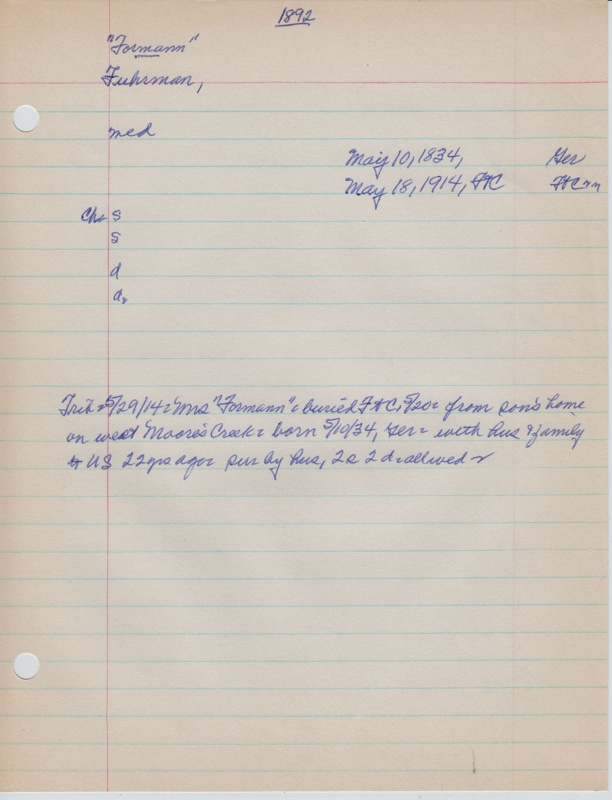 1892
"Formann"
Fuhrman,
med
May 10, 1834, Ger
May 18, 1914, FHC FHCnn
Chs s
s
d
d,
Trib 5/29/14: Mrs "Formann" buried FHC, 5/20: from son's home
on west Moore's Creek: born 5/10/34, Ger: with hus & family
to US 22 yrs ago: sur by hus, 2s 2d: all wed